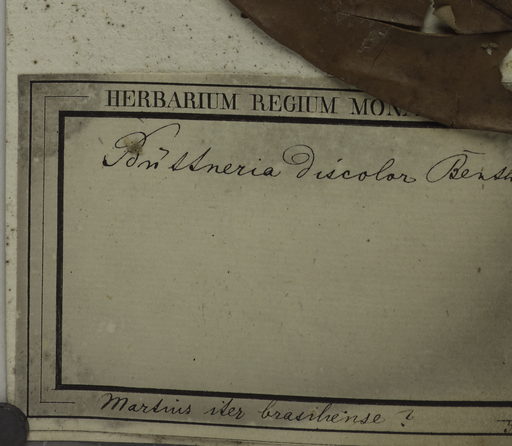 HERBARIUM REGIUM MONA
Büttneria discolor Benth
Martius iter brasiliense ?